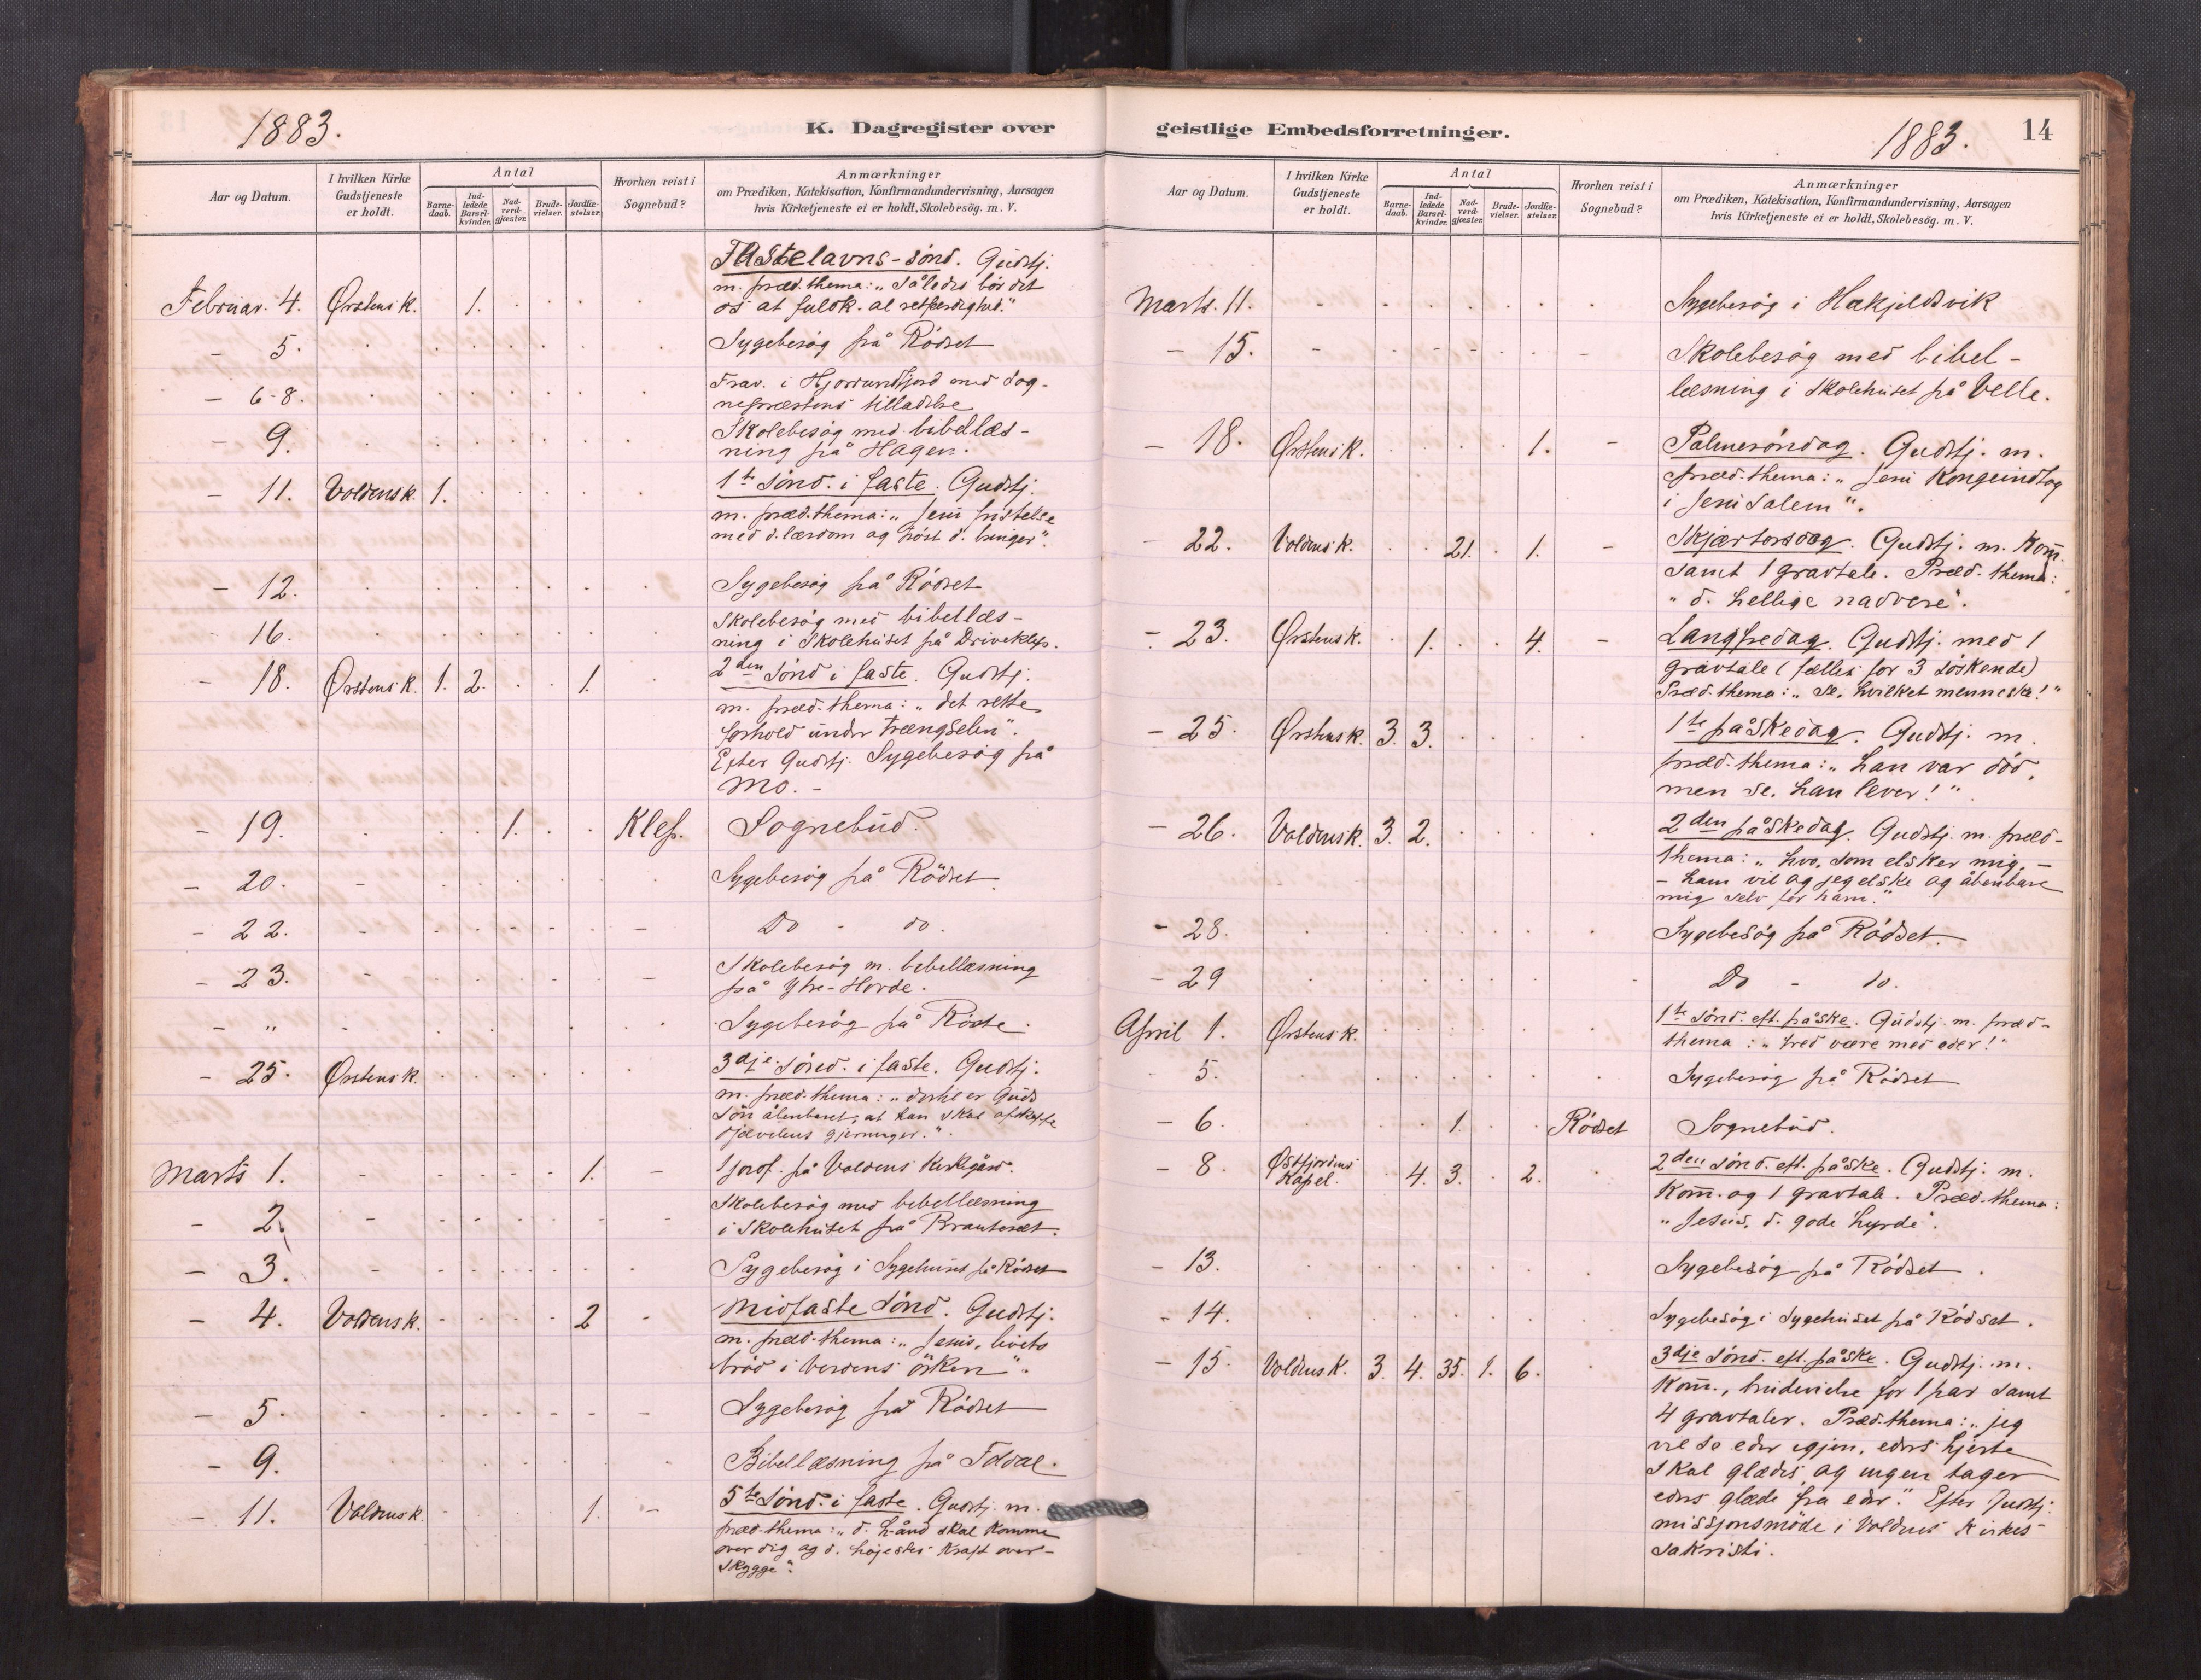 1883.
K. Dagregister over
Aar og Datum.
I hvilken Kirke Gudstjeneste er holdt.
Antal
Barne-daab.
Ind-ledede Barsel-kvinder.
Nad-verd-gjæster.
Brude-vielser.
Jordfæ-stelser.
Hvorhen reist i Sognebud?
Anmærkninger
om Prædiken, Katekisation, Konfirmandundervisning, Aarsagen
hvis Kirketjeneste ei er holdt, Skolebesög. m. V.
Fastelavns-sönd. Gudstj.
m. præd. thema: „Således bör det
Februar. 4. Ørstens K. 1. os at fuldk. al retferdighed."
- 5. Sygebesög på Rödset
Frav. i Hjorrundfjord med sog-
- 6-8. nepræstens tilladelse
Skolebesög med bibellæs-
- 9. ning på Hagen.
- 11. Voldens k. 1. 1te Sönd. i faste. Gudstj.
m. præd. thema: „Jesu fristelse
med d. lærdom og tröst d. bringer".
- 12. Sygebesög på Rödset
Skolebesög med bibellæs-
16. ning i Skolehuset på Driveklep.
- 18. Ørstens K. 1. 2. 1. 2den Sönd i faste. Gudstj.
m. præd. thema: „det rette
forhold under trængselen".
Efter Gudstj. Sygebesög på
Mo. -
- 19. 1. Klep. Sognebud.
- 20. Sygebesög på Rödset
- 22. Do - do.
Skolebesög m. bibellæsning
- 23. på Ytre-Hovde.
- „ Sygebesög på Röste.
- 25. Ørstens k. 3dje Sönd. i faste. Gudstj.
m. præd. thema: „dertil er Guds
Sön åbenbaret, at han skal afskaffe
djævelens gjerninger.".
Marts 1. 1. 1 jordf. på Voldens kirkegård.
Skolebesög med bibellæsning
- 2. i Skolehuset på Brautesæt.
- 3. Sygebesög i Sygehuset på Rödset
- 4. Voldens k. 2 Midfaste Sönd. Gudstj.
m. præd. thema: „Jesus, livets
bröd i verdens örken".
- 5. Sygebesög på Rödset
- 9. Bibellæsning på Foldal.
- 11. Voldens k. 1. 5te Sönd. i faste. Gudstj. m.
præd. thema: „d. h-ånd skal komme
over dig og d. höjestes Kraft over-
skygge".
geistlige Embedsforretninger.
1883.
14
Aar og Datum.
I hvilken Kirke Gudstjeneste er holdt.
Antal
Barne-daab.
Ind-ledede Barsel-kvinder.
Nad-verd-gjæster.
Brude-vielser.
Jordfæ-stelser.
Hvorhen reist i Sognebud?
Anmærkninger
om Prædiken, Katekisation, Konfirmandundervisning, Aarsagen
hvis Kirketjeneste ei er holdt, Skolebesög. m. V.
Marts. 11. Sygebesög i Hækjeldsvik
- 15. Skolebesög med bibel-
læsning i skolehuset på Velle.
- 18. Ørstens K. 1. Palmesöndag. Gudstj. m.
præd. thema: „Jesu Kongeindtog
i Jerusalem".
- 22. Voldens k. 21. 1. Skjærtorsdag. Gudstj. m. Kom.
samt 1 gravtale. Præd. thema:
„d. hellige nadvere".
- 23. Ørstens k. 1. 4. Langfredag. Gudstj. med 1
gravtale (fælles for 3 söskende)
Præd. thema: „se, hvilket menneske!"
- 25. Ørstens k. 3. 3. 1te påskedag. Gudstj. m.
præd. thema: „han var död,
men se, han lever!"
- 26. Voldens k. 3. 2. 2den påskedag. Gudstj. m. præd-
thema: „hvo, som elsker mig, -
- ham vil og jeg elske og åbenbare
mig selv for ham."
- 28. Sygebesög på Rödset.
- 29 Do - do.
April 1. Ørstens K. 1te Sönd. eft. påske. Gudstj. m. præd-
thema: „fred være med eder!"
5. Sygebesög på Rödset
- 6. 1. Rödset Sognebud.
- 8. Østfjordens Kapel. 4. 3. 2. 2den Sönd. eft. påske. Gudstj. m.
Kom. og 1 gravtale. Præd. thema:
„Jesus, d. gode hyrde".
- 13. Sygebesög på Rödset.
- 14. Sygebesög i Sygehuset på Rödset.
- 15. Voldens K. 3. 4. 35. 1. 6. 3dje Sönd. eft. påske. Gudstj. m.
Kom., brudevielse for 1 par samt
4 gravtaler. Præd. thema: „jeg
vil se eder igjen, eders hjerte
skal glædes, og ingen tager
eders glæde fra eder." Efter Gudstj.
missjonsmöde i Voldens Kirkes
sakristi.